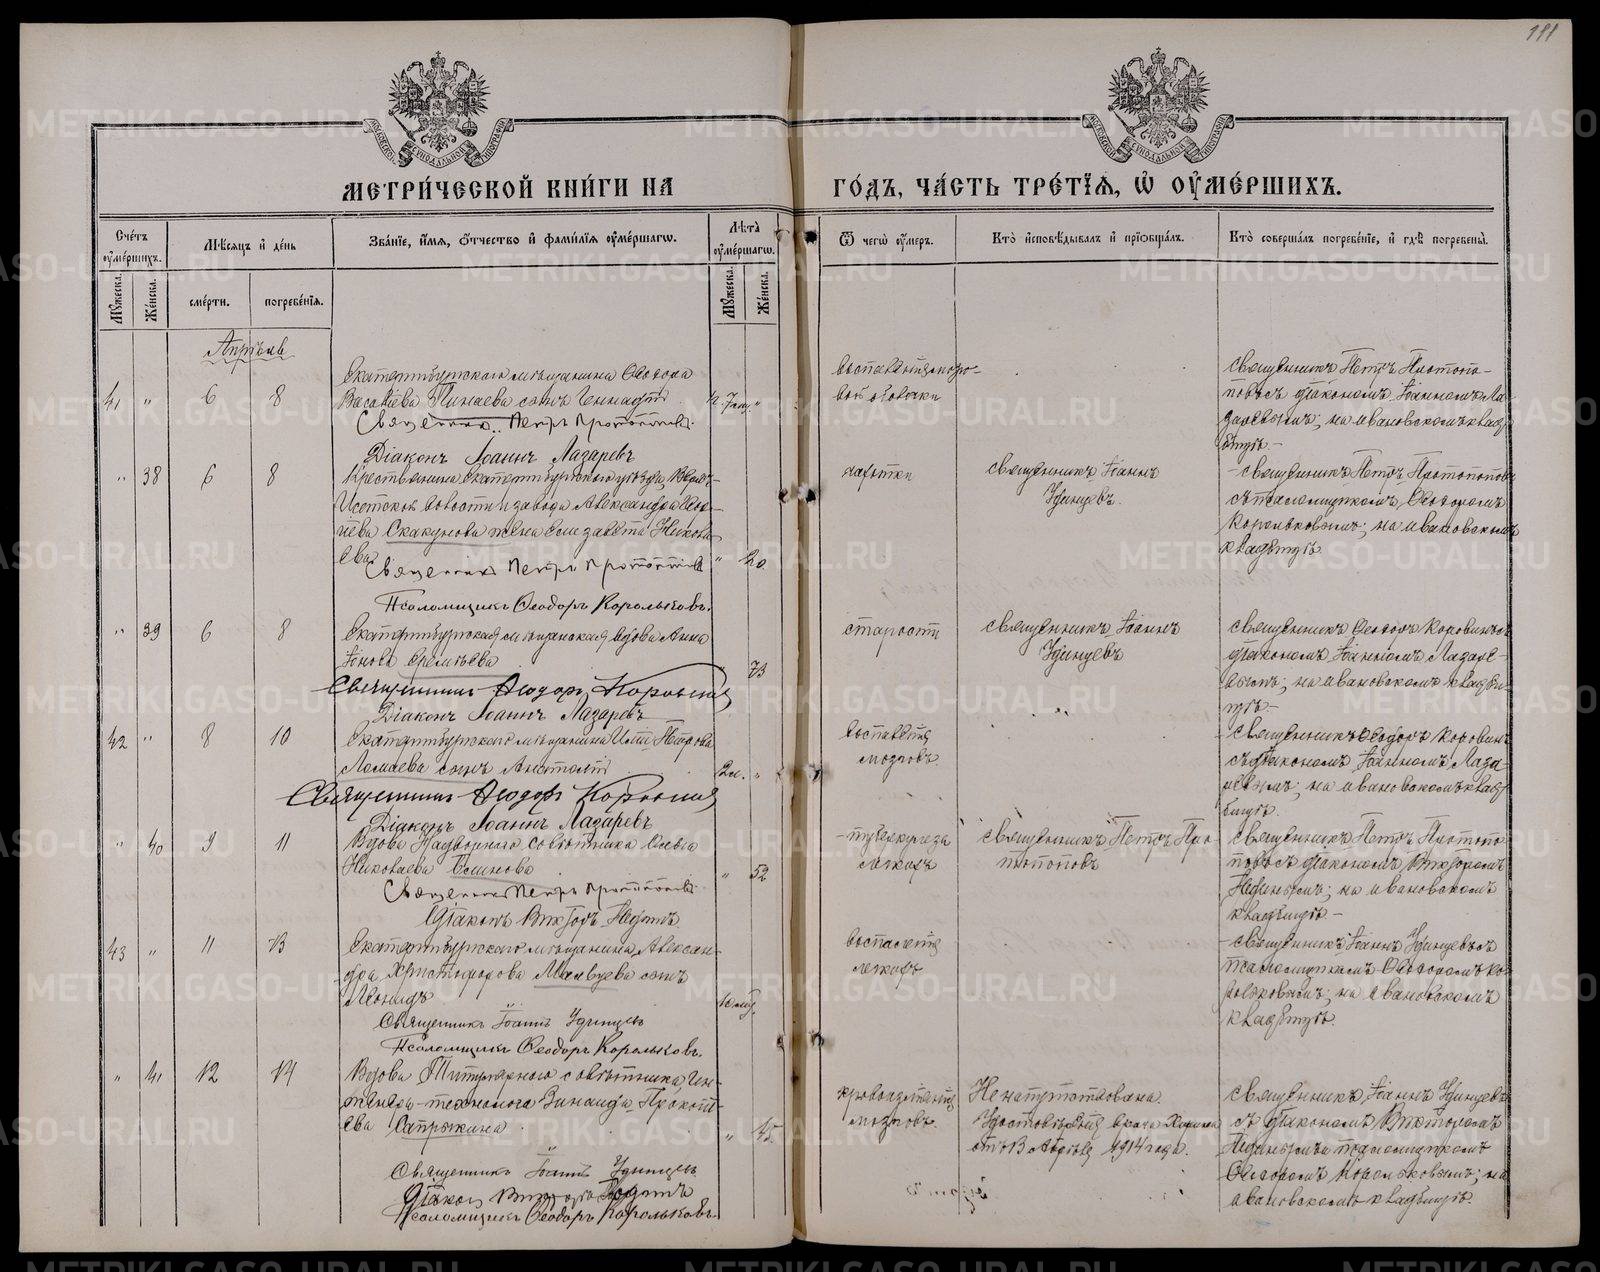 111
МОСКОВСКОЙ СѴНОДАЛЬНОЙ ТИПОГРАФІИ
МОСКОВСКОЙ СѴНОДАЛЬНОЙ ТИПОГРАФІИ
МЕТРИ́ЧЕСКОЙ КНИ́ГИ НА
ГО́ДЪ, ЧА́СТЬ ТРЕ́ТІѦ, Ѡ҆ ОУ҆МЕ́РШИХЪ.
Сче́тъ оу҆ме́ршихъ.
Мꙋжеска.
Же́нска.
Мѣ́сѧцъ и҆ де́нь
сме́рти.
погребе́нїѧ.
Зва́нїе, и҆́мѧ, ѻ҆́тчество и҆ фами́лїѧ оу҆ме́ршагѡ.
Лѣ́та оу҆ме́ршагѡ.
Мꙋжеска.
Же́нска.
Ѿ чегѡ̀ оу҆́меръ.
Кто̀ и҆сповѣ́дывалъ и҆ прїѡбща́лъ.
Кто̀ соверша́лъ погребе́нїе, и҆ гдѣ̀ погребены̀.
Апрѣль
41 " 6 8
Екатеринбургскаго мѣщанина Ѳеодора
Васильева Пинаева сынъ Геннадій
Священникъ Петръ Протопоповъ.
Діаконъ Іоаннъ Лазаревъ
Священникъ Петръ Протопо-
повъ съ діакономъ Іоанномъ Ла-
заревымъ; на Ивановскомъ клад-
бищѣ.–
" 38 6 8
Крестьянина Екатеринбургскаго уѣзда, Верхъ-
Исетской волости и завода Александра
Скакунова жена Елизавета Никола-
ева
" 20.
Священникъ Петръ Протопоповъ
Псаломщикъ Ѳеодоръ Корольковъ.
чахотки
священникъ Іоаннъ
Удинцевъ.
– священникъ Петръ Протопоповъ
съ псаломщикомъ Ѳеодоромъ
Корольковымъ; на Ивановскомъ
кладбищѣ.
" 39 6 8
Екатеринбургская мѣщанская вдова Анна
Іонова Еремѣева
73
Священникъ Ѳеодоръ Коровинъ
Діаконъ Іоаннъ Лазаревъ
старости
священникъ Іоаннъ
Удинцевъ
священникъ Ѳеодоръ Коровинъ съ
діакономъ Іоанномъ Лазаре-
вымъ; на Ивановскомъ кладби-
щѣ–
42 " 8 10
Екатеринбургскаго мѣщанина Петрова
Ломаева сынъ Анатолій
2м. "
Священникъ Ѳеодоръ Коровинъ
Діаконъ Іоаннъ Лазаревъ
воспаленія
мозговъ.
– священникъ Ѳеодоръ Коровинъ
съ діакономъ Іоанномъ Лаза-
ревымъ; на Ивановскомъ клад-
бищѣ.
" 40 9 11
Вдова Надворнаго Совѣтника
Николаева
" 52
Священникъ Петръ Протопоповъ
Діаконъ Викторъ
– туберкулеза
легкихъ
священникъ Петръ Про-
топоповъ
священникъ Петръ Протопо-
повъ съ діакономъ Викторомъ
на Ивановскомъ
кладбищѣ.–
43 " 11 13
Екатеринбургскаго мѣщанина, Алексан-
дра Христофорова сынъ
Леонидъ
Священникъ Іоаннъ Удинцевъ
Псаломщикъ Ѳеодоръ Корольковъ.
воспаленія
легкихъ
– священникъ Іоаннъ Удинцевъ съ
псаломщикомъ Ѳеодоромъ Ко-
рольковымъ; на Ивановскомъ
кладбищѣ.
" 41 12 14
Вдова Титулярнаго совѣтника, Ин-
женеръ-технолога Зинаида Прокопі-
ева Сапрыкина
" 45.
Священникъ Іоаннъ Удинцевъ
Діаконъ Викторъ
Псаломщикъ Ѳеодоръ Корольковъ.
кровоизліянія
мозговъ.
Не напутствована.
Удостовѣреніе врача
отъ 13 Апрѣля 1914 года.
священникъ Іоаннъ Удинцевъ
съ діакономъ Викторомъ
и псаломщикомъ
Ѳеодоромъ Корольковымъ; на
Ивановскомъ кладбищѣ.
METRIKI.GASO-URAL.RU